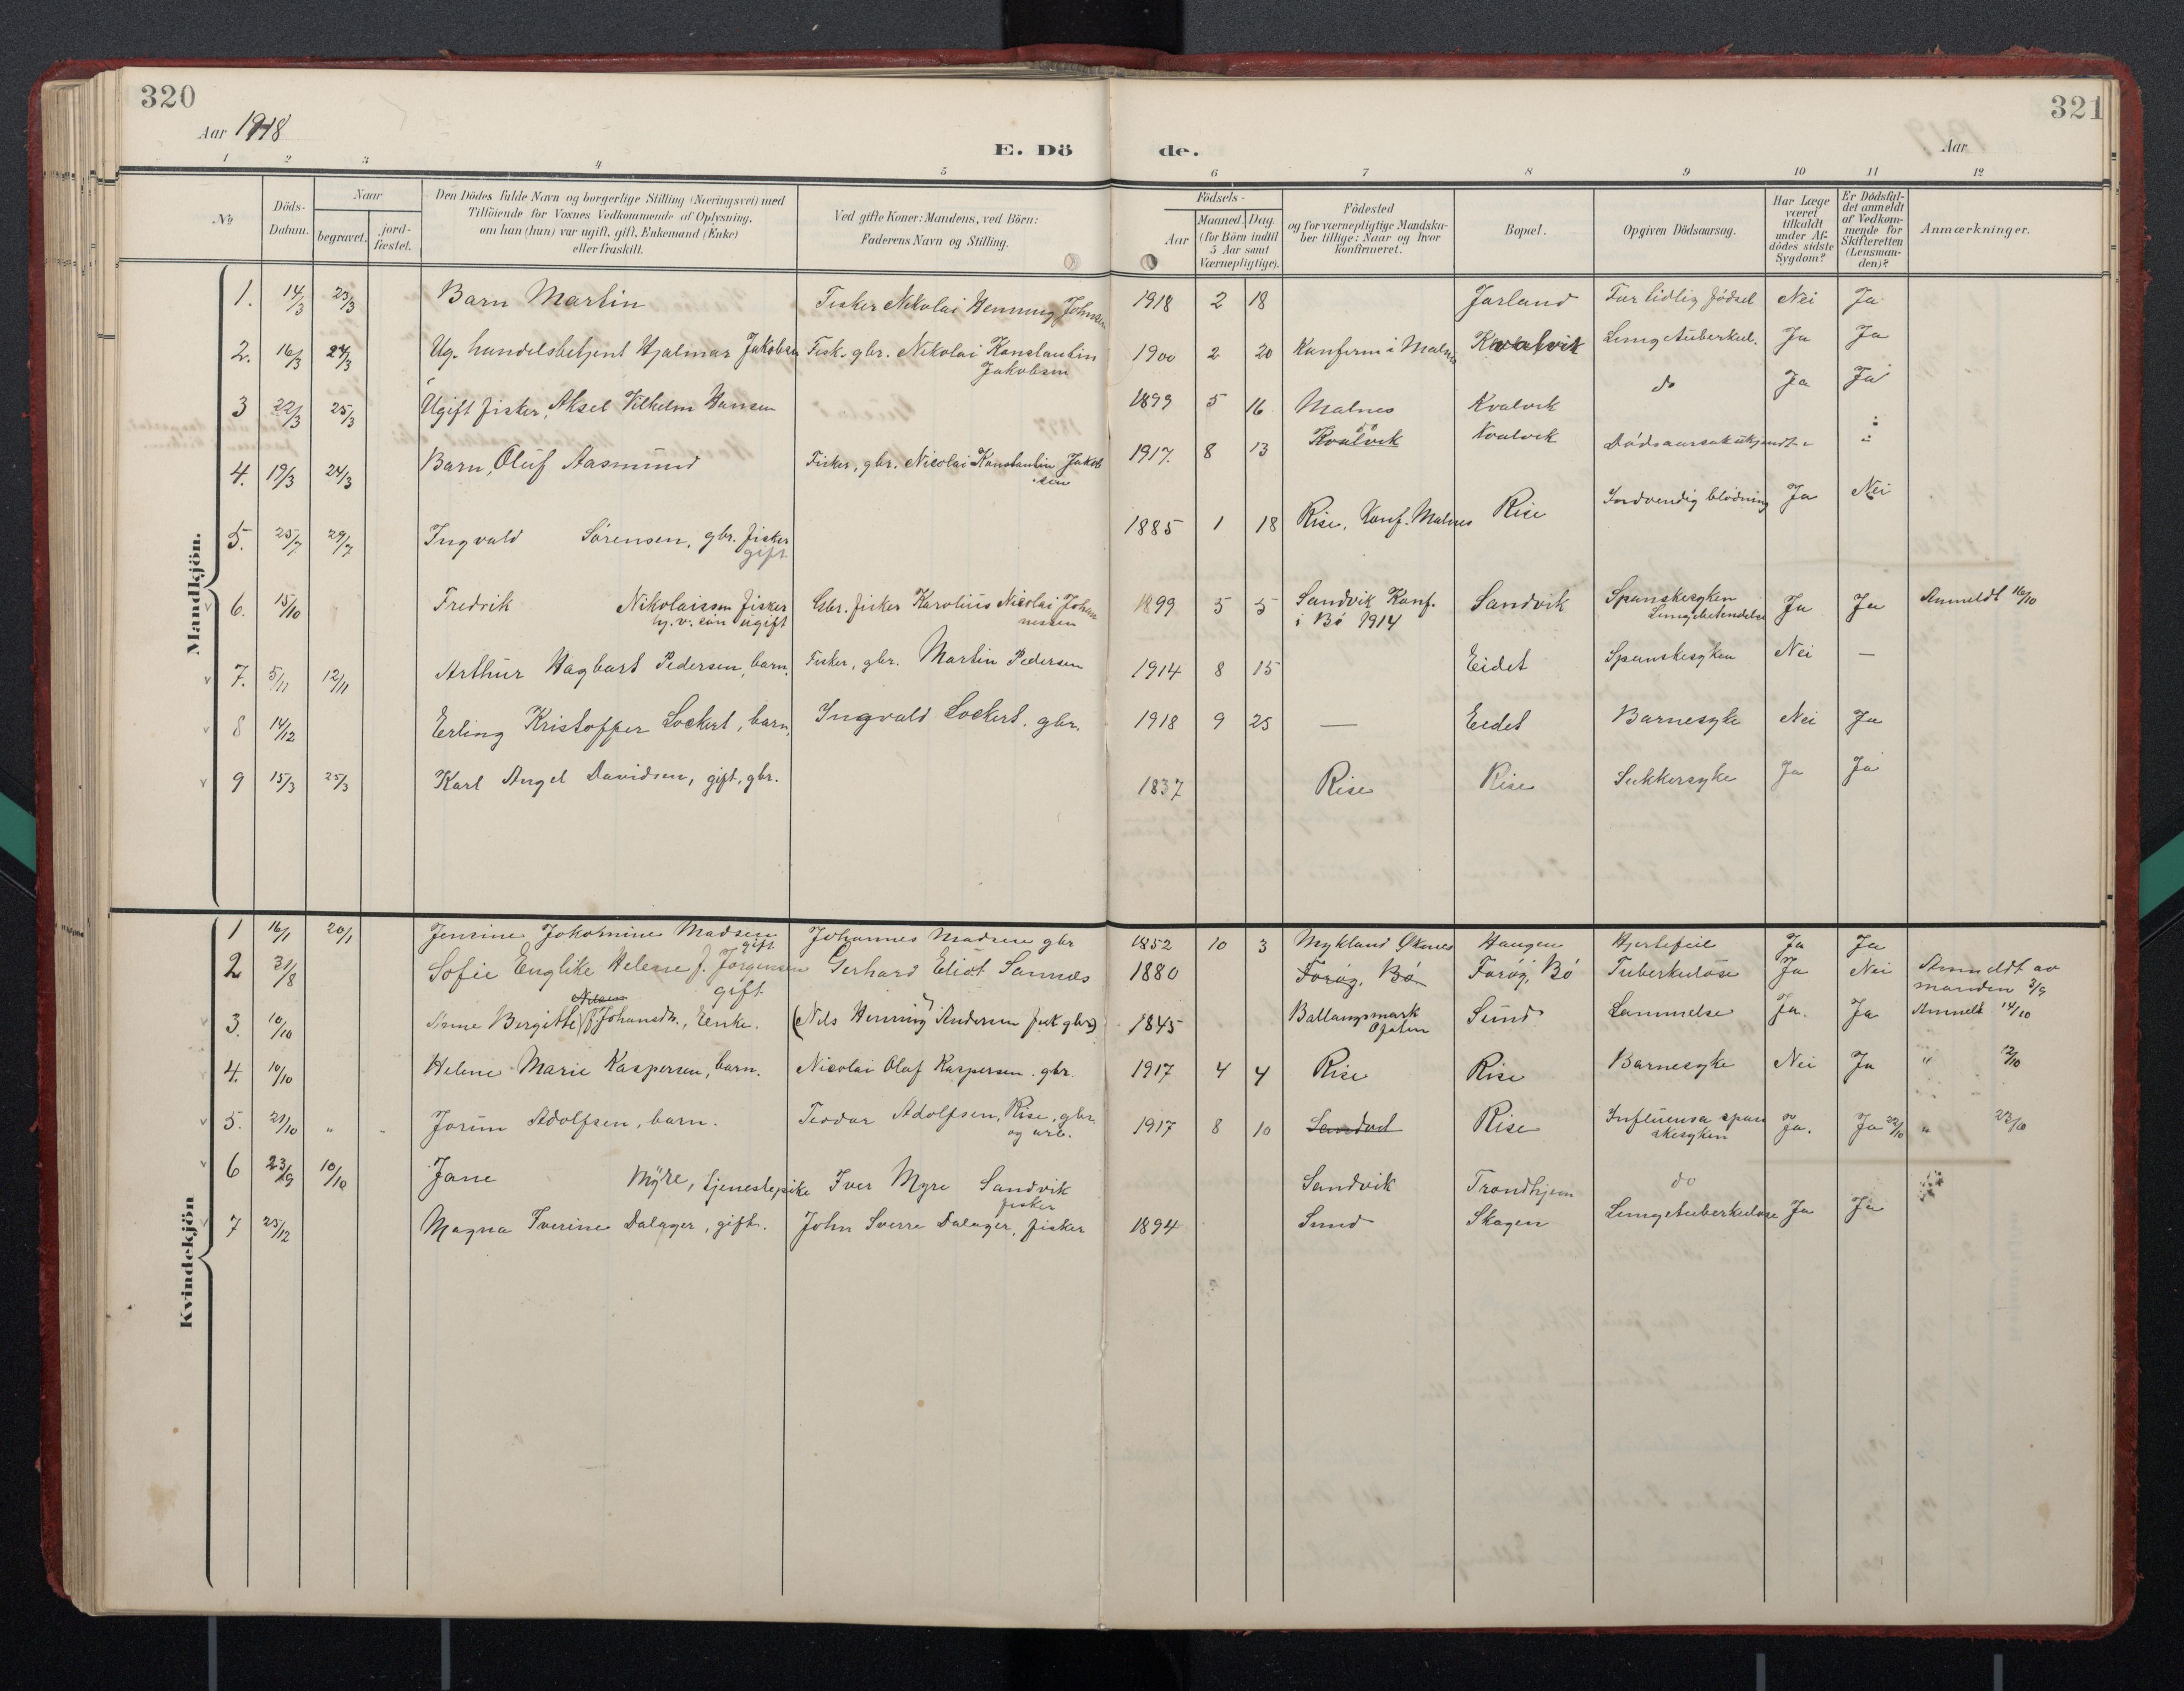 320
Aar 1918
E. Dö
de.
321
Aar
1 2 3 4 5 6 7 8 9 10 11 12
No
Döds-
Datum.
Naar
begravet.
jord-
fæstet.
Den Dödes fulde Navn og borgerlige Stilling (Næringsvei) med
Tilföiende for Voxnes Vedkommende af Oplysning.
om han (hun) var ugift, gift, Enkemand (Enke)
eller fraskilt.
Ved gifte Koner: Mandens, ved Börn:
Faderens Navn og Stilling.
Födsels-
Aar
Maaned. Dag.
(for Börn indtil
5 Aar samt
Værnepligtige).
Födested
og for værnepligtige Mandska-
ber tillige: Naar og hvor
konfirmeret.
Bopæl.
Opgiven Dödsaarsag.
Har Læge
været
tilkaldt
under Af-
dödes sidste
Sygdom?
Er Dödsfal-
det anmeldt
af Vedkom-
mende for
Skifteretten
(Lensman-
den)?
Anmærkninger.
Mandkjön.
1. 14/3 23/3 Barn Martin Fisker Nikolai Henning Johnsen 1918 2 18 Jorland For tidlig födsel Nei Ja
2. 16/3 24/3 Ug. handelsbetjent Hjalmar Jakobsen Fisk. gbr. Nikolai Konstantin
Jakobsen 1900 2 20 Konferm i Malnes Kvalvik Lungetuberkul. Ja Ja
3 22/3 25/3 Ugift fisker, Aksel Vilhelm Hansen 1899 5 16 Malnes Kvalvik do Ja Ja
4. 19/3 24/3 Barn, Oluf Aasmund Fisker, gbr. Nicolai Konstantin Jakob
sen 1917. 8 13 do
Kvalvik Kvalvik Dödsaarsak ukjendt
5. 25/7 29/7 Ingvald Sörensen, gbr. fisker
gift 1885 1 18 Rise, Konf. Malnes Rise Indvendig blödning Ja Nei
6. 15/10 Fredrik Nikolaissen fisker
hj. v. sön ugift Gbr. fisker Karolius Nicolai Johan
nessen 1899 5 5 Sandvik Konf.
i Bö 1914 Sandvik Spanskesyken
Lungebetendelse Ja Ja Anmeldt 16/10
7. 5/11 12/11 Arthur Hagbart Pedersen, barn. Fisker, gbr. Martin Pedersen 1914 8 15 Eidet Spanskesyken Nei —
8 14/12 Erling Kristoffer Lockert, barn, Ingvald Lockert. gbr. 1918 9 25 — Eidet Barnesyke Nei Ja
9 15/3 25/3 Karl Angel Davidsen, gift, gbr. 1837 Rise Rise Sukkersyke Ja Ja
Kvindekjön
1 16/1 20/1 Jensine Madsen
gift Johannes Madsen gbr 1852 10 3 Mykland Öksnes Haugen Hjertefeil Ja Ja
2 31/8 Sofie Englike Helene J. Jörgensen
gift Gerhard Eliot Sannes 1880 Foröy, Bö Foröy, Bö Tuberkulöse Ja Nei Anmeldt av
manden 2/9
3. 10/10 Anne Bergitte Johansdr., Enke. (Nils Henning Andersen fisk gbr) 1845 Ballangsmark
Ofoten Sund Lammelse Ja. Ja Anmeldt 14/10
4. 10/10 Helene Marie Kaspersen, barn. Nicolai Olaf Kaspersen. gbr. 1917 4 4 Rise Rise Barnesyke Nei Ja " 12/10
5. 21/10 " " Jorun Adolfsen, barn. Teodor Adolfsen, Rise, gbr.
og arb. 1917 8 10 Rise Influensa span
skesyken Ja. Ja 22/10 " 23/10
6 23/9 10/10 Jane Myre, tjenestepike Iver Myre Sandvik
fisker Sandvik Trondhjem do
7 25/12 Magna Iverine Dalager, gift. John Sverre Dalager, fisker 1894 Sund Skagen Lungetuberkulose Ja Ja